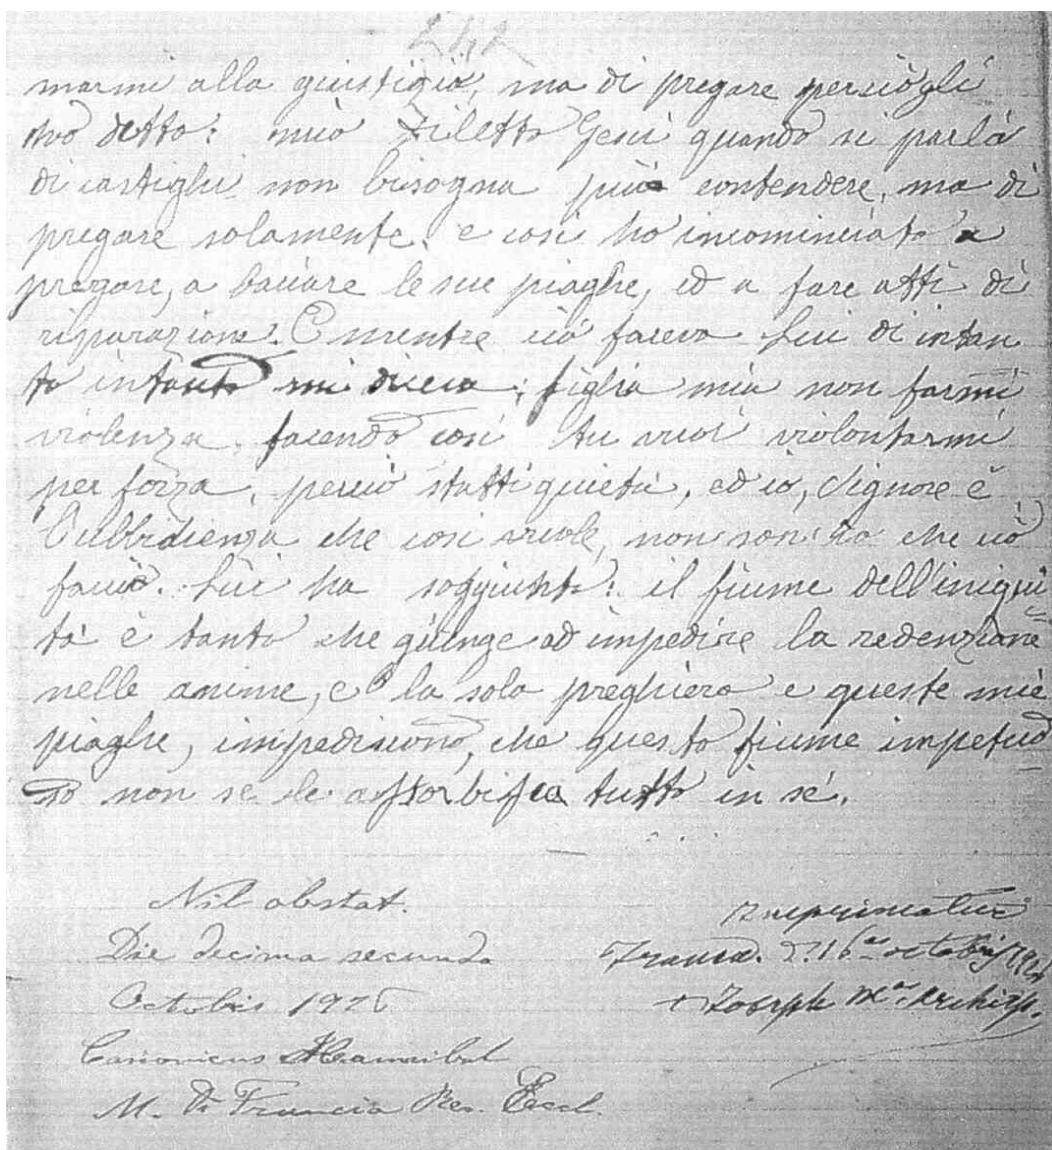 242
marmi alla giustizia, ma di pregare perciò gli
ho detto: mio diletto Gesù quando si parla
di castighi non bisogna più contendere, ma di
pregare solamente. e così ho incominciato a
pregare, a baciare le sue piaghe, ed a fare atti di
riparazione. E mentre ciò faceva Lui di intan
to intanto mi diceva: figlia mia non farmi
violenza, facendo così tu vuoi violentarmi
per forza, perciò statti quieta, ed io, Signore è
l'ubbidienza che così vuole, non son io che ciò
faccio. Lui ha soggiunto: il fiume dell'iniqui
tà è tanto che giunge ad impedire la redenzione
nelle anime, e la sola preghiera e queste mie
piaghe, impediscono, che questo fiume impetuo
so non se le assorbisca tutto in sé.
Nil obstat.
Die decima secunda
Octobris 1926
Canonicus Hannibal
M. Di Francia Rev. Eccl.
Imprimatur
D. 16 octobris
+ Joseph M. Archiep.